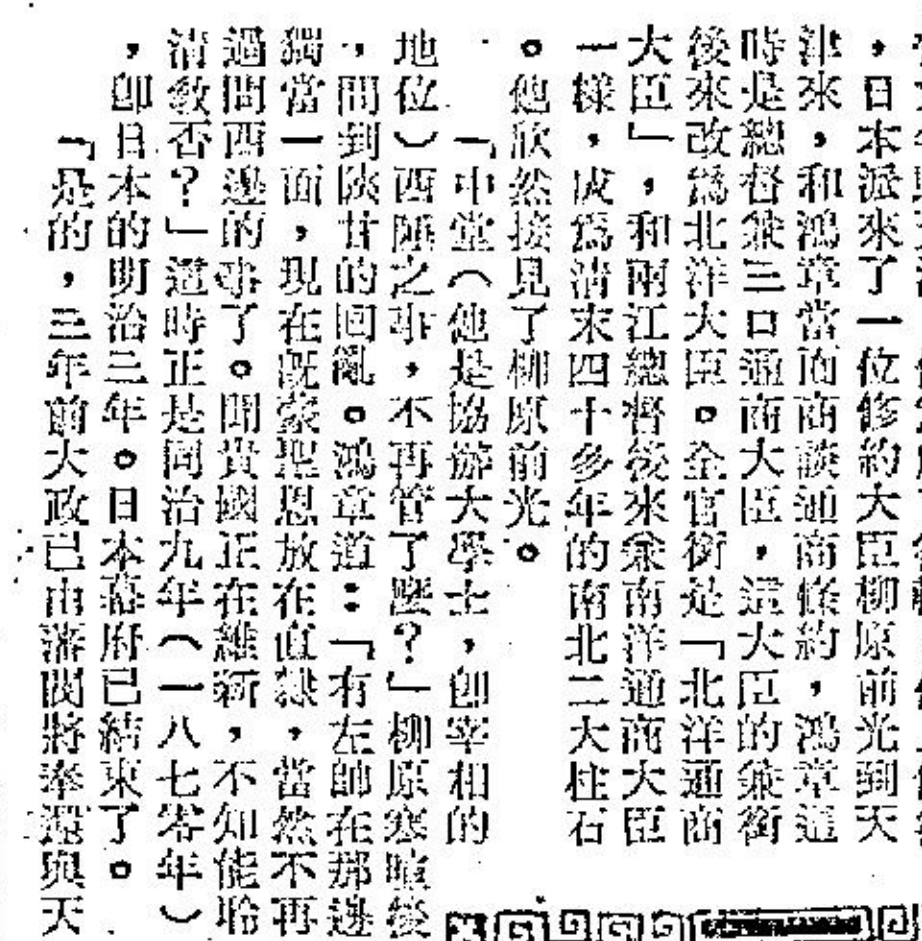 ，日本派來了一位修約大臣柳原前光到天
津來，和鴻章當面商談通商條約，鴻章這
時是總督兼三口通商大臣，這大臣的兼銜
後來改爲北洋大臣。全官銜是「北洋通商
大臣」，和兩江總督後來兼南洋通商大臣
一樣，成爲清末四十多年的南北二大柱石
。他欣然接見了柳原前光。
「中堂（他是協辦大學士，卽宰相的
地位）西陲之事，不再管了麼？」柳原寒暄後
，問到陝甘的回亂。鴻章道：「有左帥在那邊
獨當一面，現在旣蒙聖恩放在直隸，當然不再
過問西邊的事了。聞貴國正在維新，不知能聆
淸敎否？」這時正是同治九年（一八七零年）
，卽日本的明治三年。日本幕府已結束了。
「是的，三年前大政已由藩閥將奉還與天